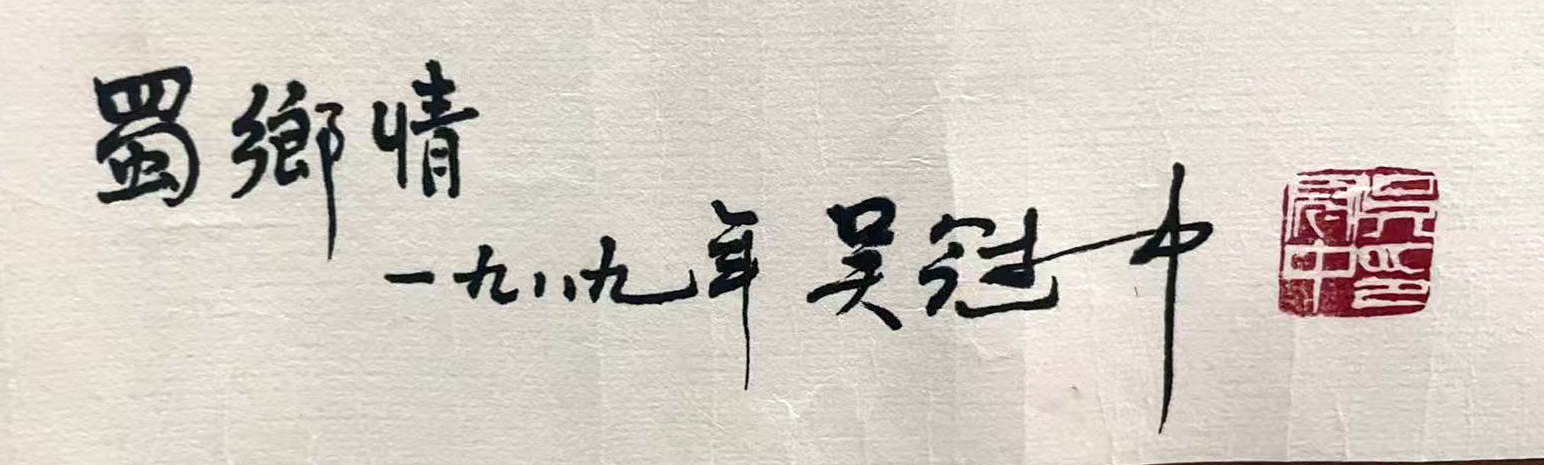 蜀鄉情
一九八九年 吴冠中
吴冠中印